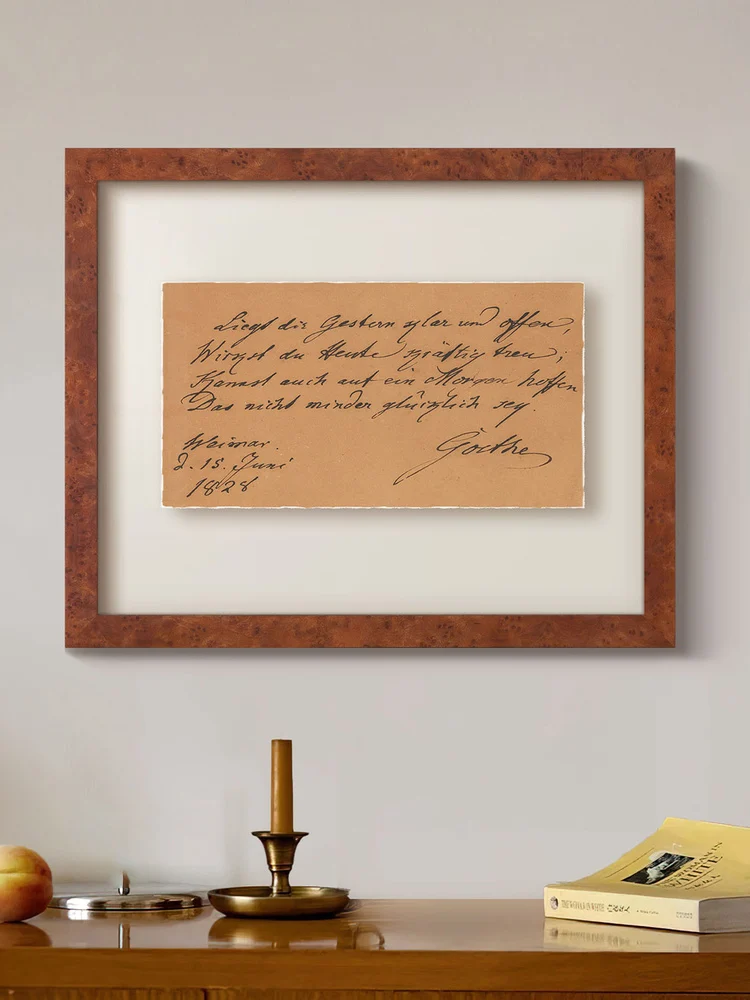 Liegt dir Gestern klar und offen,
Wirkst du Heute kräftig treu;
Kannst auch auf ein Morgen hoffen
Das nicht minder glücklich sey.
Weimar.
d. 15. Juni
1828
Goethe
WOMAN IN
WHITE
THE WOMAN IN WHITE 白衣女人